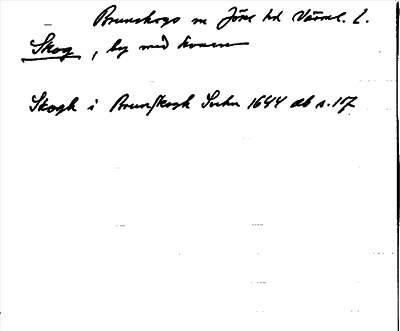 Brunskogs sn Jösse hd Värml. l.
Skog, by med kvarn
Skogh i Brunskogh Sochn 1644 db s. 117